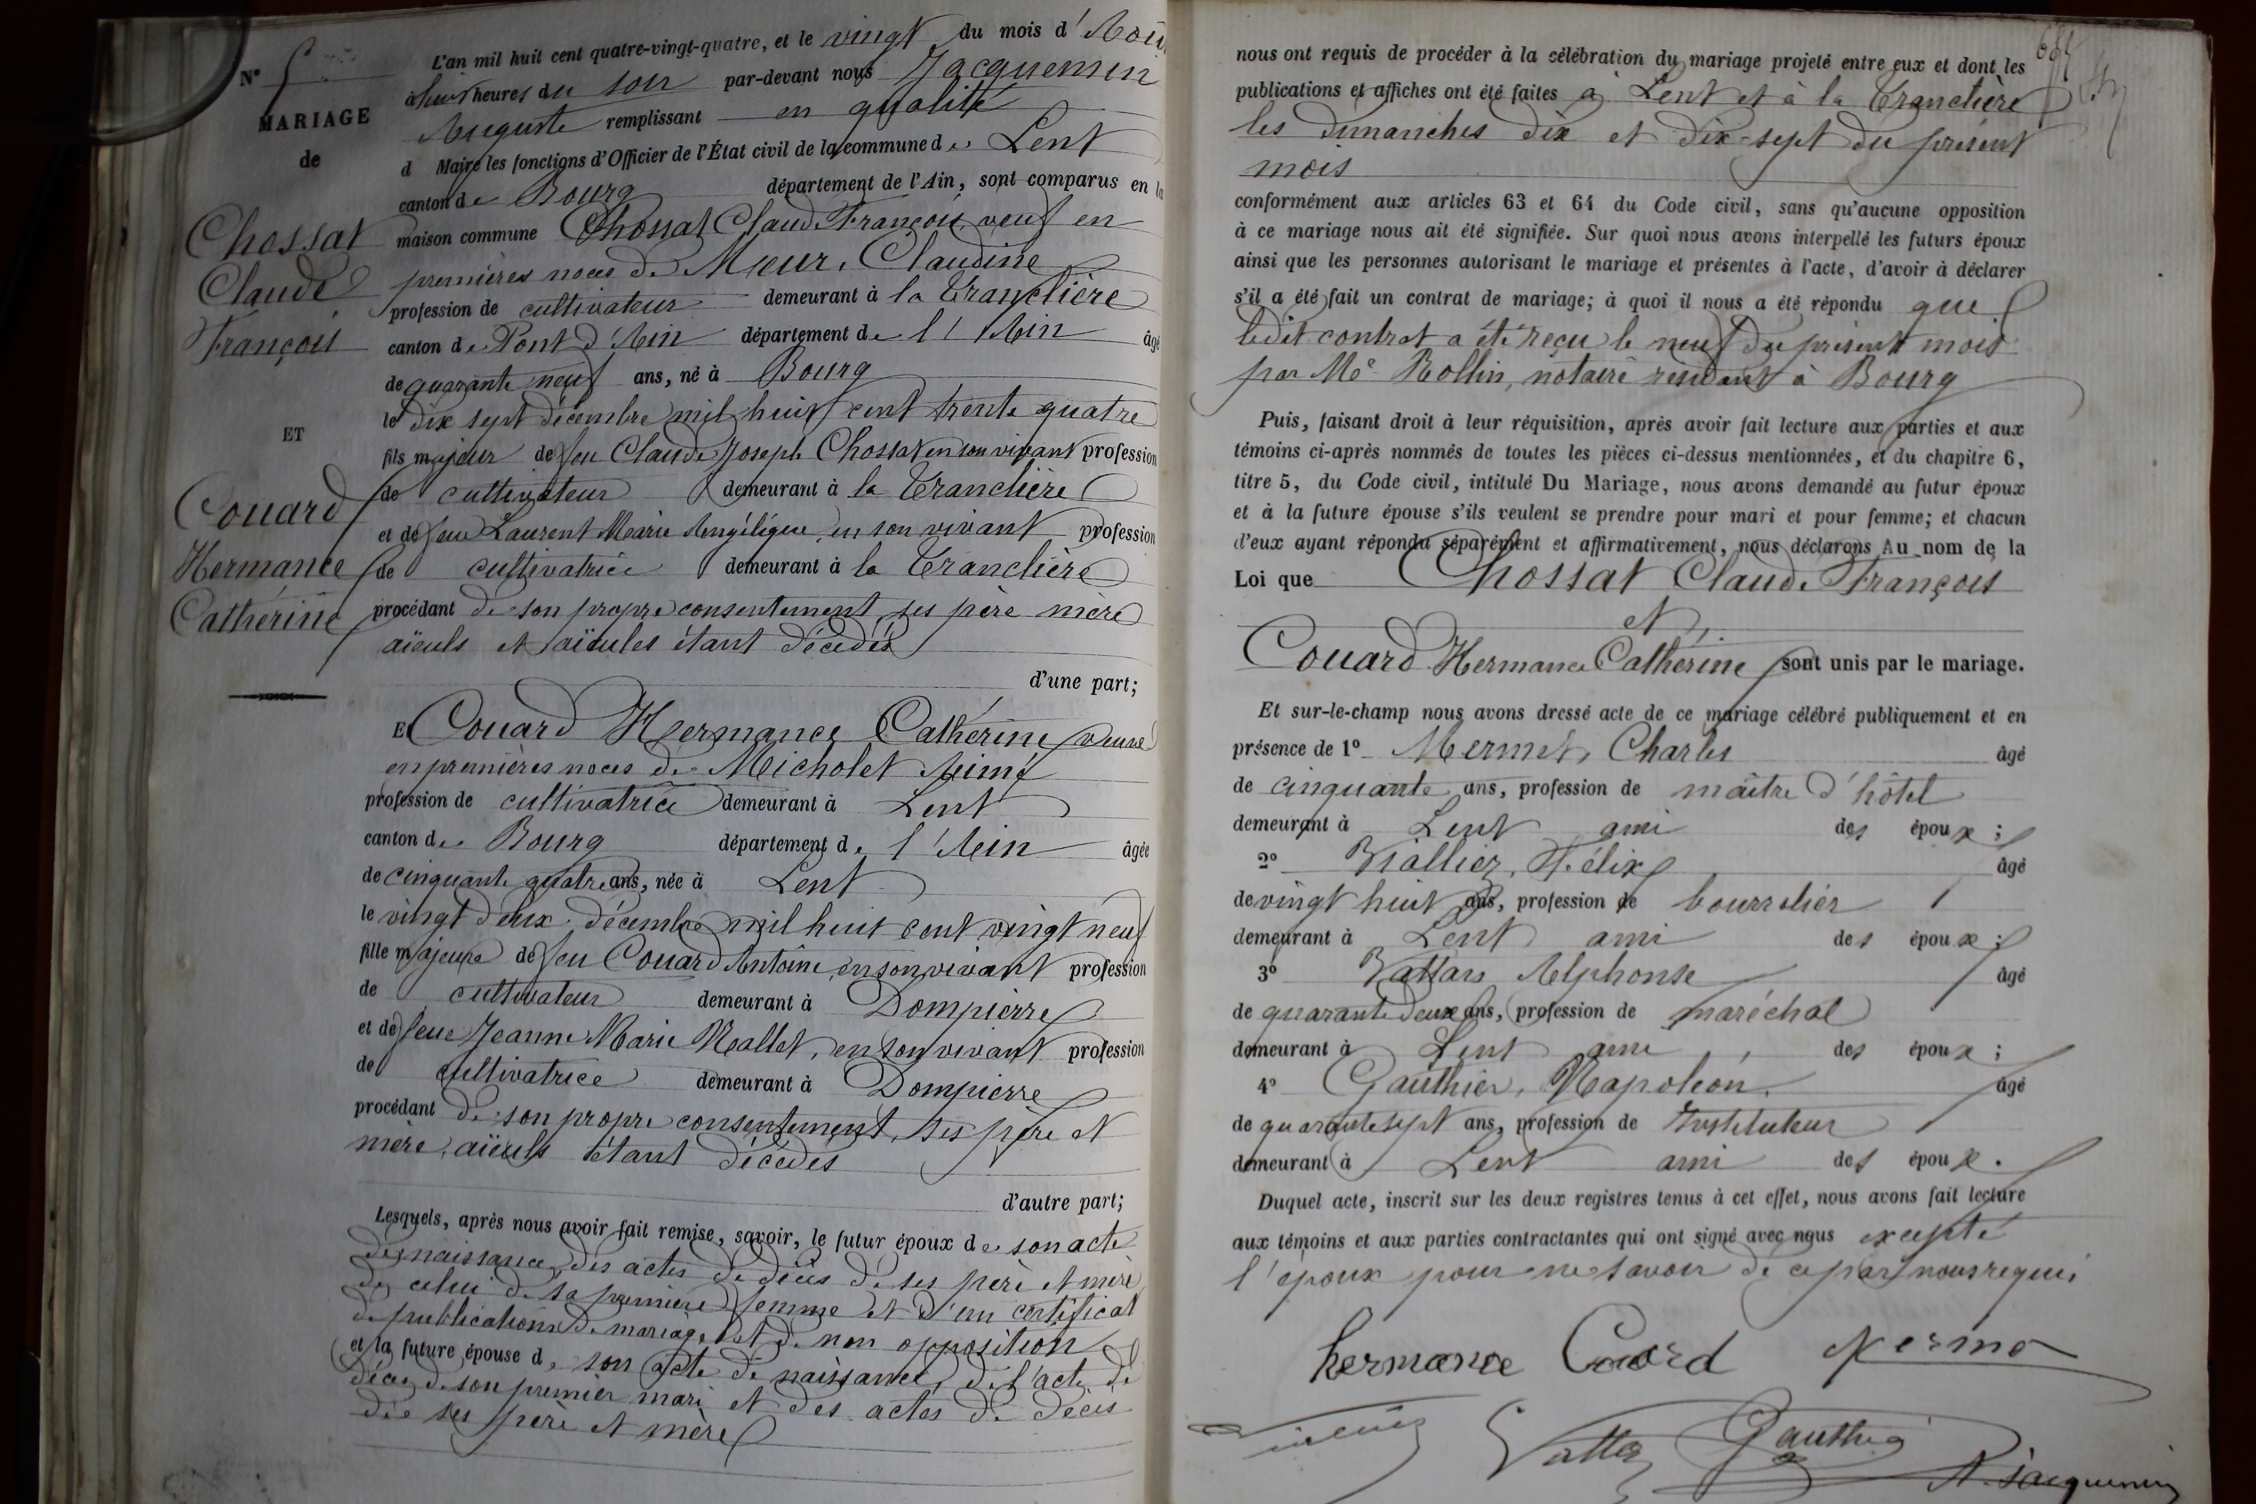 N°
MARIAGE
de
Chossat
Claude
François
ET
Couard
Hermance
Cathérine
L'an mil huit cent quatre-vingt-quatre, et le vingt du mois d'Août
à huit heures du soir par-devant nous Jacquemin
Auguste remplissant en qualité
d Maire les fonctions d'Officier de l'État civil de la commune de Lent
canton de Bourg département de l'Ain, sont comparus en la
maison commune Chossat Claude François veuf en
premières noces de Claudine
profession de cultivateur demeurant à la Tranclière
canton de Pont d'Ain département de l'Ain âgé
de quarante neuf ans, né à Bourg
le dix sept décembre mil huit cent trente quatre
fils majeur de feu Claude Joseph Chossat en son vivant profession
de cultivateur demeurant à la Tranclière
et de feue Laurent Marie Angélique, en son vivant profession
de cultivatrice demeurant à la Tranclière
procédant de son propre consentement, ses père mère
aïeuls et aïeules étant décédés
d'une part;
Et Couard Hermance Cathérine veuve
en premières noces de Micholet Aimé
profession de cultivatrice demeurant à Lent
canton de Bourg département de l'Ain âgée
de cinquante quatre ans, née à Lent
le vingt deux décembre mil huit cent vingt neuf
fille majeure de feu Couard Antoine, en son vivant profession
de cultivateur demeurant à Dompierre
et de feue Jeanne Marie Nallet, en son vivant profession
de cultivatrice demeurant à Dompierre
procédant de son propre consentement, ses père et
mère, aïeuls étant décédés
d'autre part;
Lesquels, après nous avoir fait remise, savoir, le futur époux de son acte
de naissance, des actes de décès de ses père et mère,
de celui de sa première femme et d'un certificat
de publications de mariage et de non opposition
et la future épouse d, son acte de naissance, de l'acte de
décès de son premier mari et des actes de décès
de ses père et mère
nous ont requis de procéder à la célébration du mariage projeté entre eux et dont les
publications et affiches ont été faites à Lent et à la Tranclière
les dimanches dix et dix-sept du présent
mois
conformément aux articles 63 et 64 du Code civil, sans qu'aucune opposition
à ce mariage nous ait été signifiée. Sur quoi nous avons interpellé les futurs époux
ainsi que les personnes autorisant le mariage et présentes à l'acte, d'avoir à déclarer
s'il a été fait un contrat de mariage; à quoi il nous a été répondu que
ledit contrat a été reçu le neuf du présent mois
par Me Rollin, notaire résidant à Bourg
Puis, faisant droit à leur réquisition, après avoir fait lecture aux parties et aux
témoins ci-après nommés de toutes les pièces ci-dessus mentionnées, et du chapitre 6,
titre 5, du Code civil, intitulé Du Mariage, nous avons demandé au futur époux
et à la future épouse s'ils veulent se prendre pour mari et pour femme; et chacun
d'eux ayant répondu séparément et affirmativement, nous déclarons Au nom de la
Loi que Chossat Claude François
et
Couard Hermance Cathérine sont unis par le mariage.
Et sur-le-champ nous avons dressé acte de ce mariage célébré publiquement et en
présence de 1° Mermet, Charles âgé
de cinquante ans, profession de maître d'hôtel
demeurant à Lent ami des époux;
2° Félix âgé
de vingt huit ans, profession de bourrelier
demeurant à Lent ami des époux;
3° Alphonse âgé
de quarante deux ans, profession de maréchal
demeurant à Lent ami des époux;
4° Gauthier, Napoléon, âgé
de quarante sept ans, profession de Instituteur
demeurant à Lent ami des époux.
Duquel acte, inscrit sur les deux registres tenus à cet effet, nous avons fait lecture
aux témoins et aux parties contractantes qui ont signé avec nous excepté
l'époux pour ne savoir de ce par nous requis
hermance Couard
Gauthier
A. Jacquemin